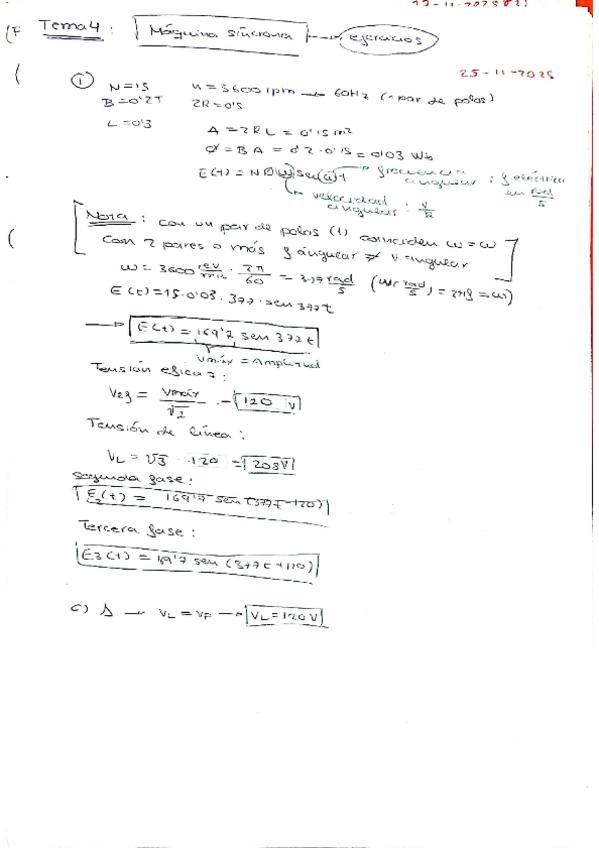 Tema 4 : Máquina síncrona → ejercicios
25-11-2025
① N=15 n=3600 rpm → 60Hz (1 par de polos)
B=0'2T 2R=0'5
L=0'3 A=2RL=0'15m²
Ø=BA=0'2·0'15=0'03 Wb
E(t)=NØω sen(ω)t frecuencia angular : f eléctrica en rad/s
velocidad angular : V/R
Nota : con un par de polos (1) coinciden ω=ω
Con 2 pares o más f angular ≠ v. angular
ω = 3600 rev/min · 2π/60 = 377 rad/s (ω( rad/s ) = 2πf = ω)
E(t)=15·0'03·377·sen 377t
→ E(t)=169'7 sen 377t
Vmáx = Amplitud
Tensión eficaz :
Vef = Vmáx/√2 → 120 V
Tensión de línea :
VL = √3 · 120 = 208V
Segunda fase :
E2(t) = 169'7 sen (377t-120)
Tercera fase :
E3(t) = 169'7 sen (377t+120)
c) Δ → VL = VF → VL=120V